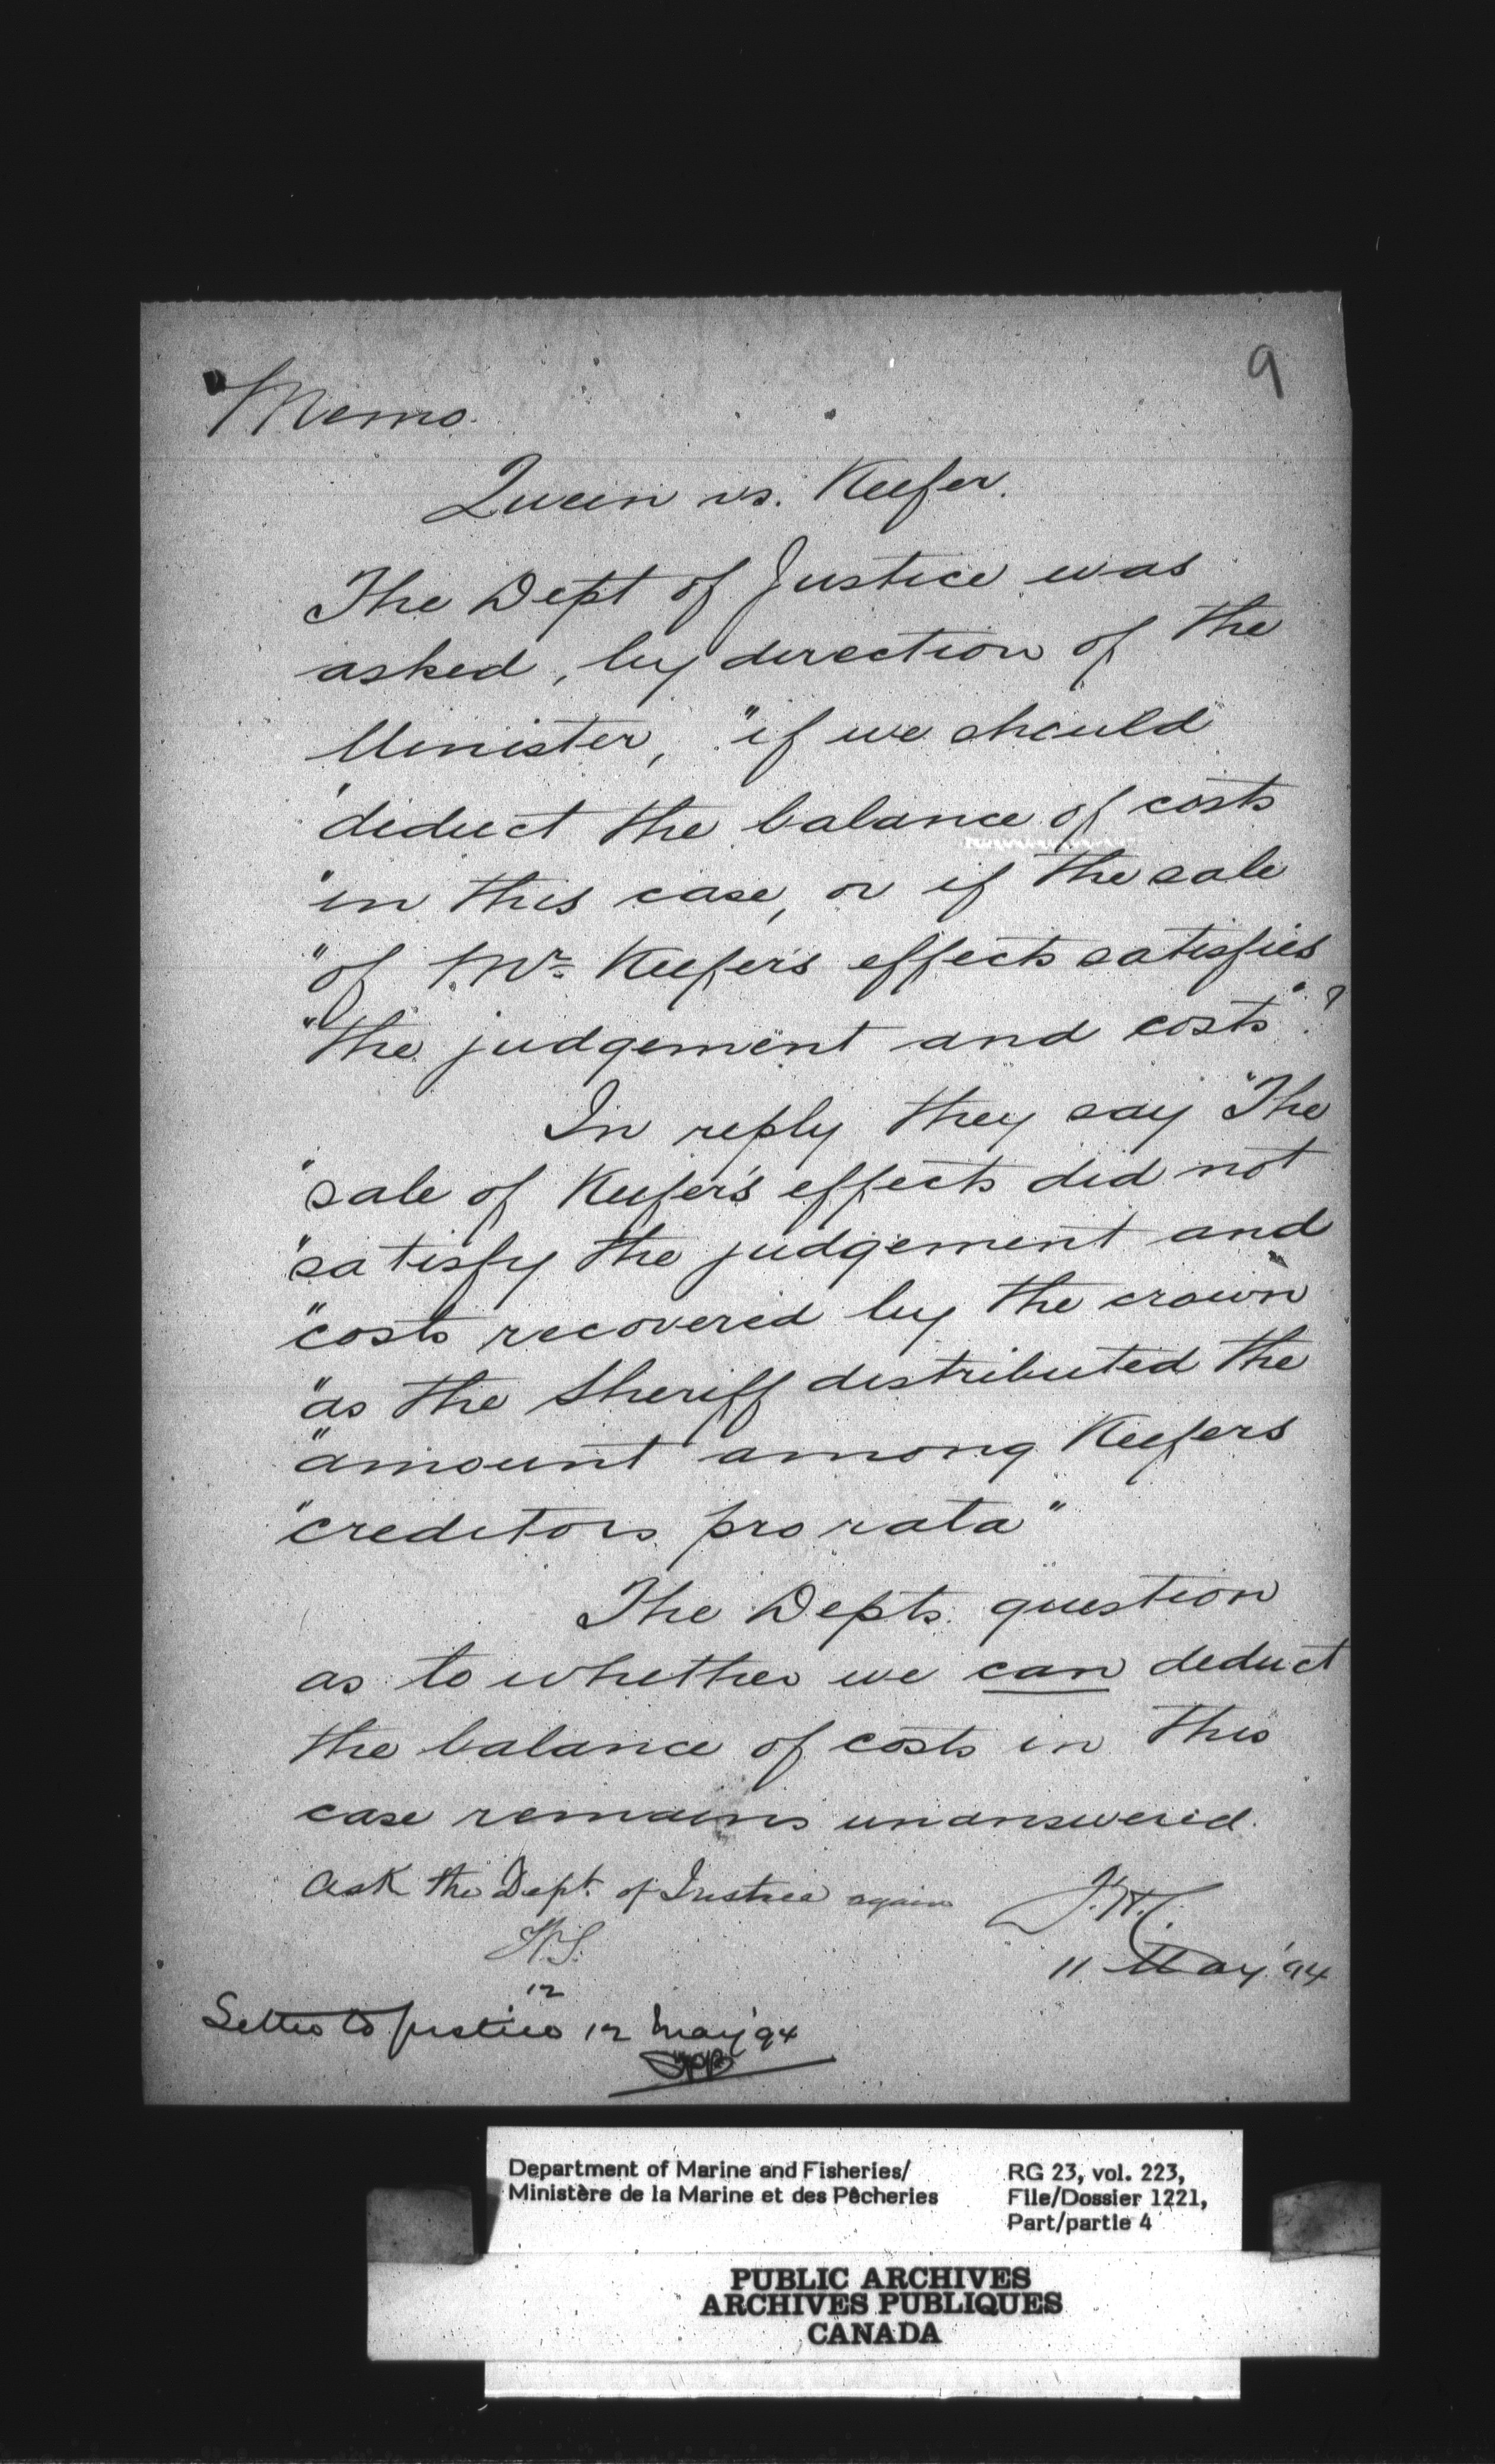 9
Memo.
Queen vs. Keefer.
The Dept of Justice was
asked, by direction of the
Minister, "if we should
"deduct the balance of costs
"in this case, or if the sale
"of Mr. Keefer's effects satisfies
"the judgement and costs"?
In reply they say "The
"sale of Keefer's effects did not
"satisfy the judgement and
"costs recovered by the crown
"as the Sheriff distributed the
"amount among Keefers
"creditors pro rata"
The Depts. question
as to whether we can deduct
the balance of costs in this
case remains unanswered.
Ask the Dept. of Justice again
11 May '94
12
Letter to Justice 12 May '94
Department of Marine and Fisheries/
Ministère de la Marine et des Pêcheries
RG 23, vol. 223,
File/Dossier 1221,
Part/partie 4
PUBLIC ARCHIVES
ARCHIVES PUBLIQUES
CANADA